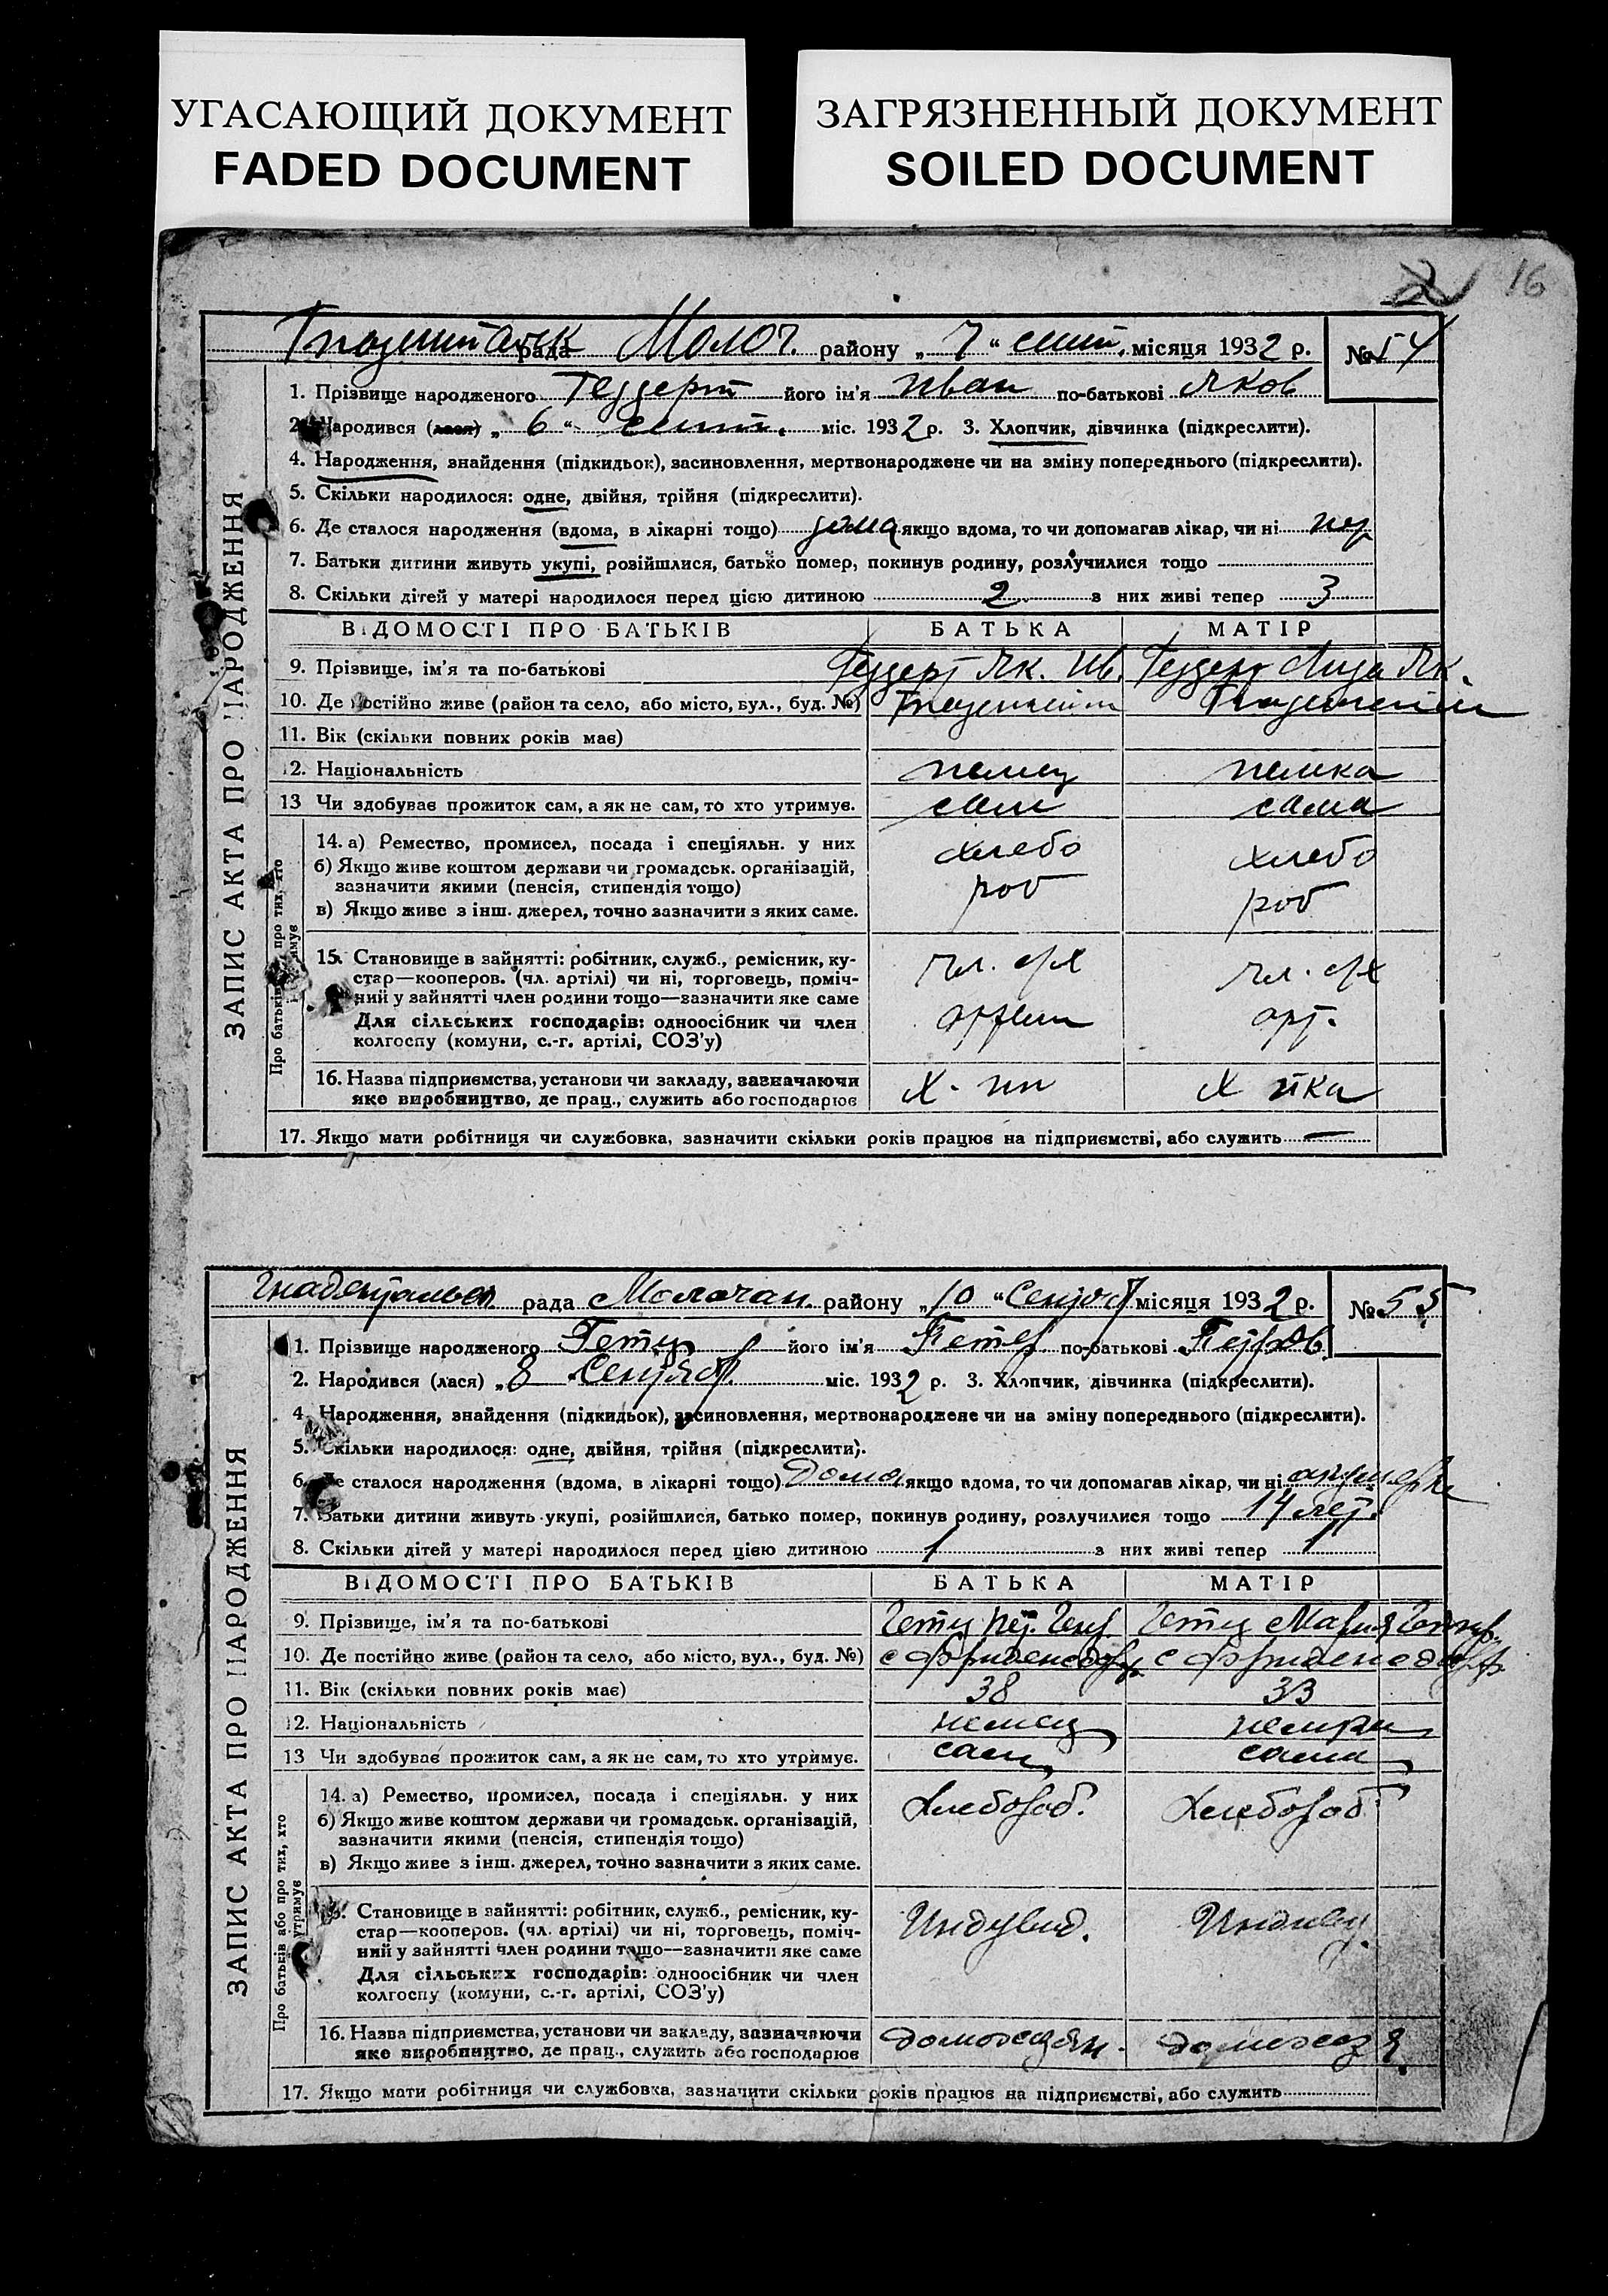 УГАСАЮЩИЙ ДОКУМЕНТ
FADED DOCUMENT
ЗАГРЯЗНЕННЫЙ ДОКУМЕНТ
SOILED DOCUMENT
16
рада Молоч. району „ 7 “ сент. місяця 1932 р. № 54
ЗАПИС АКТА ПРО НАРОДЖЕННЯ
1. Прізвище народженого Геддерт його ім'я Иван по-батькові Яков
2. Народився (лася) „ 6 “ сент. міс. 1932 р. 3. Хлопчик, дівчинка (підкреслити).
4. Народження, знайдення (підкидьок), засиновлення, мертвонароджене чи на зміну попереднього (підкреслити).
5. Скільки народилося: одне, двійня, трійня (підкреслити).
6. Де сталося народження (вдома, в лікарні тощо) дома якщо вдома, то чи допомагав лікар, чи ні
7. Батьки дитини живуть укупі, розійшлися, батько помер, покинув родину, розлучилися тощо
8. Скільки дітей у матері народилося перед цією дитиною 2 з них живі тепер 3
ВІДОМОСТІ ПРО БАТЬКІВ БАТЬКА МАТІР
9. Прізвище, ім'я та по-батькові Геддерт Як. Ив. Геддерт Лиза Як.
10. Де постійно живе (район та село, або місто, вул., буд. №)
11. Вік (скільки повних років має)
12. Національність немец немка
13 Чи здобував прожиток сам, а як не сам, то хто утримує. сам сама
Про батьків або про тих, хто утримує
14. а) Ремество, промисел, посада і спеціяльн. у них хлебо хлебо
б) Якщо живе коштом держави чи громадськ. організацій,
зазначити якими (пенсія, стипендія тощо) роб роб
в) Якщо живе з інш. джерел, точно зазначити з яких саме.
15. Становище в зайнятті: робітник, служб., ремісник, ку-
стар—кооперов. (чл. артілі) чи ні, торговець, поміч- чл. с/х чл. с/х
ний у зайнятті член родини тощо—зазначити яке саме
Для сільських господарів: одноосібник чи член артели арт.
колгоспу (комуни, с.-г. артілі, СОЗ'у)
16. Назва підприємства, установи чи закладу, зазначаючи Х. ин Х йка
яке виробництво, де прац., служить або господарює
17. Якщо мати робітниця чи службовка, зазначити скільки років працює на підприємстві, або служить —
рада Молочан. району „ 10 “ Сентяб місяця 1932 р. № 55
ЗАПИС АКТА ПРО НАРОДЖЕННЯ
1. Прізвище народженого Гетц його ім'я Петер по-батькові Петров
2. Народився (лася) „ 8 Сентяб. міс. 1932 р. 3. Хлопчик, дівчинка (підкреслити).
4. Народження, знайдення (підкидьок), засиновлення, мертвонароджене чи на зміну попереднього (підкреслити).
5. Скільки народилося: одне, двійня, трійня (підкреслити).
6. Де сталося народження (вдома, в лікарні тощо) Дома якщо вдома, то чи допомагав лікар, чи ні акушерка
7. Батьки дитини живуть укупі, розійшлися, батько помер, покинув родину, розлучилися тощо 14 лет.
8. Скільки дітей у матері народилося перед цією дитиною 1 з них живі тепер 1
ВІДОМОСТІ ПРО БАТЬКІВ БАТЬКА МАТІР
9. Прізвище, ім'я та по-батькові Гетц Пет. Генр. Гетц Мария
10. Де постійно живе (район та село, або місто, вул., буд. №) с Фриденсдорф с Фриденсдорф
11. Вік (скільки повних років має) 38 33
12. Національність немец немкан
13 Чи здобував прожиток сам, а як не сам, то хто утримує. сам сама
Про батьків або про тих, хто утримує
14. а) Ремество, промисел, посада і спеціяльн. у них Хлебороб. Хлебороб.
б) Якщо живе коштом держави чи громадськ. організацій,
зазначити якими (пенсія, стипендія тощо)
в) Якщо живе з інш. джерел, точно зазначити з яких саме.
15. Становище в зайнятті: робітник, служб., ремісник, ку-
стар—кооперов. (чл. артілі) чи ні, торговець, поміч- Индувид. Индивид.
ний у зайнятті член родини тощо—зазначити яке саме
Для сільських господарів: одноосібник чи член
колгоспу (комуни, с.-г. артілі, СОЗ'у)
16. Назва підприємства, установи чи закладу, зазначаючи домохозяин. домохозя.
яке виробництво, де прац., служить або господарює
17. Якщо мати робітниця чи службовка, зазначити скільки років працює на підприємстві, або служить